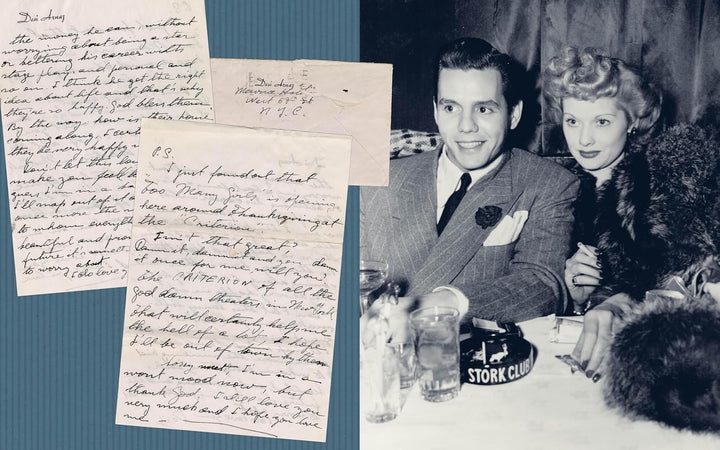 Desi Arnaz
the money he can, without
worrying about being a star
or bettering his career with
stage play and personal and
so on. I think he got the right
idea about life and that's why
they're so happy God bless them.
By the way, how is their home
coming along, I cert
they be very happy
Don't let this
make you feel b
I'm in a
I'll map out of it
once more the
to whom everyth
beautiful and pro
future is
to worry about
I do love y
Desi Arnaz
West 69th St
N.Y.C.
P.S.
I just found out that
"Too Many Girls" is opening
here around Thanksgiving at
the "Criterion"
Isn't that great?
Damn it, damn it and you damn
it once for me will you?
the CRITERION of all the
god damn theaters in New York
that will certainly help me
the hell of a lot, I hope
I'll be out of town by then
Sorry I'm in a
wont mood now, but
thank God, I still love you
very much and I hope you love
me
STORK CLUB